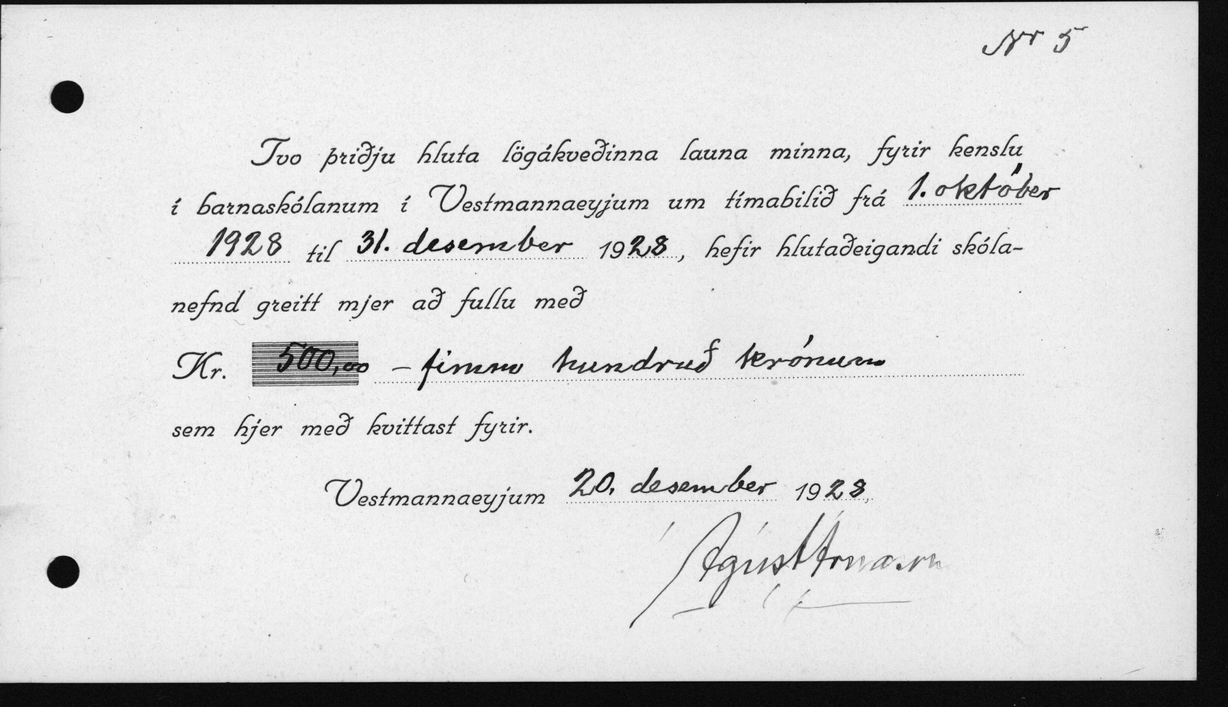 Nr 5
Tvo þriðju hluta lögákveðinna launa minna, fyrir kenslu
í barnaskólanum í Vestmannaeyjum um tímabilið frá 1. október
1928 til 31. desember 1928, hefir hlutaðeigandi skóla-
nefnd greitt mjer að fullu með
Kr. 500,00 – fimm hundruð krónum
sem hjer með kvittast fyrir.
Vestmannaeyjum 20. desember 1928
Ágúst Árnason